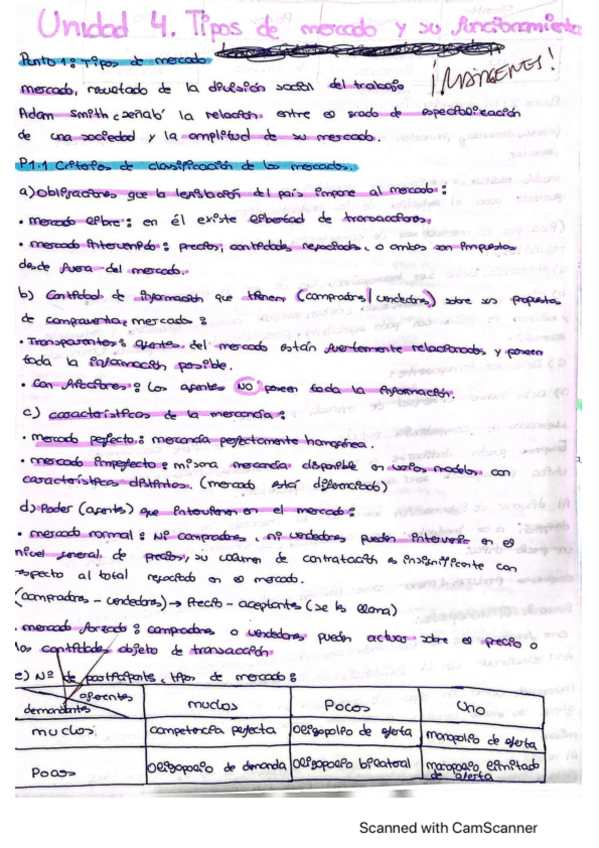 Unidad 4. Tipos de mercado y su funcionamiento
Punto 1: Tipos de mercado
¡MÁRGENES!
mercado, resultado de la división social del trabajo
Adam Smith señaló la relación entre el grado de especialización
de una sociedad y la amplitud de su mercado.
P1.1 Criterios de clasificación de los mercados.
a) Obligaciones que la legislación del país impone al mercado:
• mercado libre: en él existe libertad de transacciones.
• mercado intervenido: precios, cantidades negociadas, o ambos son impuestos
desde fuera del mercado.
b) Cantidad de información que tienen (compradores/vendedores) sobre sus propuestas
de compraventa, mercados:
• Transparentes: agentes del mercado están fuertemente relacionados y poseen
toda la información posible.
• Con fricciones: los agentes NO poseen toda la información.
c) características de la mercancía:
• mercado perfecto: mercancía perfectamente homogénea.
• mercado imperfecto: misma mercancía disponible en varios modelos con
características distintas. (mercado está diferenciado)
d) Poder (agentes) que intervienen en el mercado:
• mercado normal: Ni compradores, ni vendedores pueden intervenir en el
nivel general de precios, su volumen de contratación es insignificante con
respecto al total negociado en el mercado.
(compradores - vendedores) → Precio - aceptantes (se les llama)
• mercado forzado: compradores o vendedores pueden actuar sobre el precio o
las cantidades objeto de transacción
e) Nº de participantes, tipos de mercado:
oferentes
demandantes
muchos
Pocos
Uno
muchos
competencia perfecta
Oligopolio de oferta
monopolio de oferta
Pocos
Oligopolio de demanda
Oligopolio bilateral
monopolio limitado
de oferta
Scanned with CamScanner